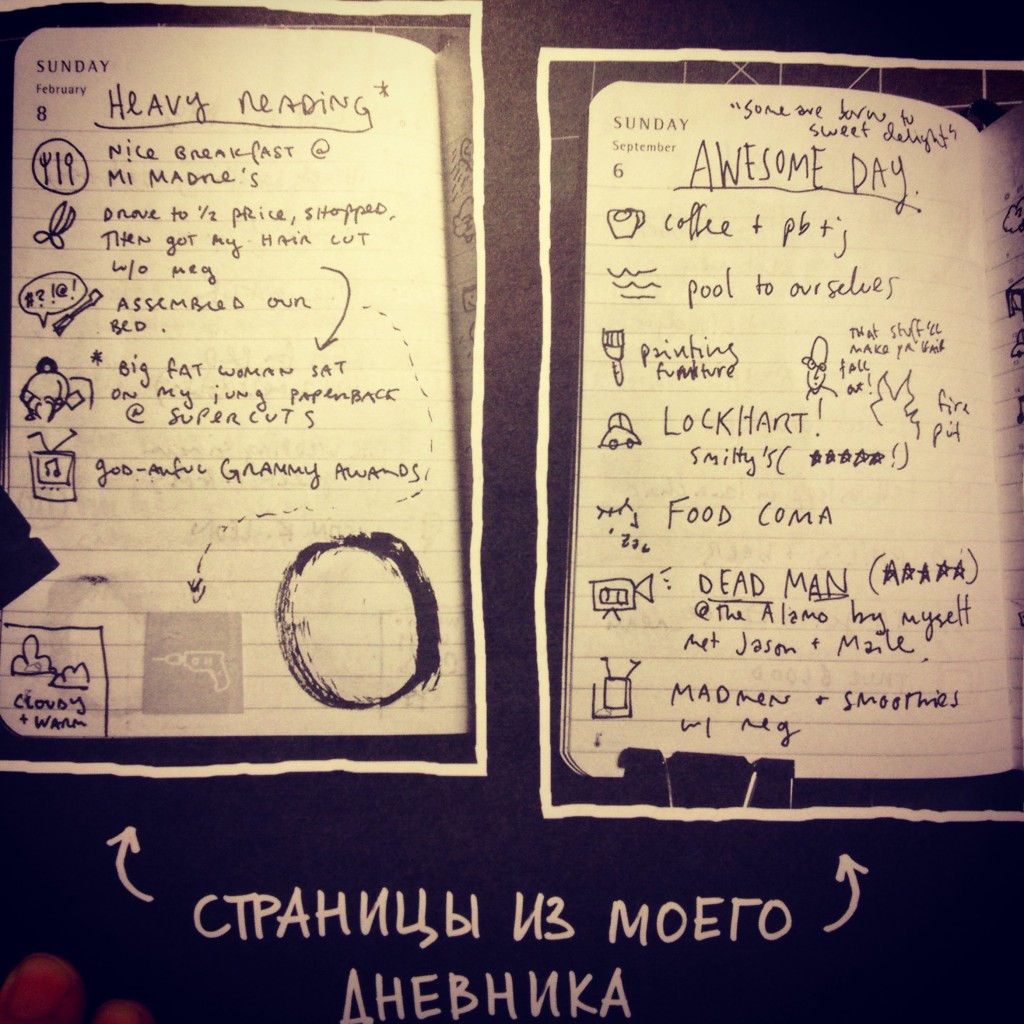 SUNDAY
February
8
HEAVY READING*
NICE BREAKFAST @
MI MADRE'S
DROVE TO 1/2 PRICE, SHOPPED,
THEN GOT MY HAIR CUT
W/O MEG
#?!@!
ASSEMBLED OUR
BED.
* BIG FAT WOMAN SAT
ON MY JUNG PAPERBACK
@ SUPERCUTS
GOD-AWFUL GRAMMY AWARDS
CLOUDY
+ WARM
SUNDAY
September
6
"some are born to
sweet delight"
AWESOME DAY.
coffee + pb + j
pool to ourselves
painting
furniture
THAT STUFF'LL
MAKE YR HAIR
fall
out!
fire
pit
LOCKHART!
Smitty's (★★★★★!)
zzz
FOOD COMA
DEAD MAN (★★★★★)
@ The Alamo by myself
met Jason +
MADMEN + SMOOTHIES
w/ meg
СТРАНИЦЫ ИЗ МОЕГО
ДНЕВНИКА